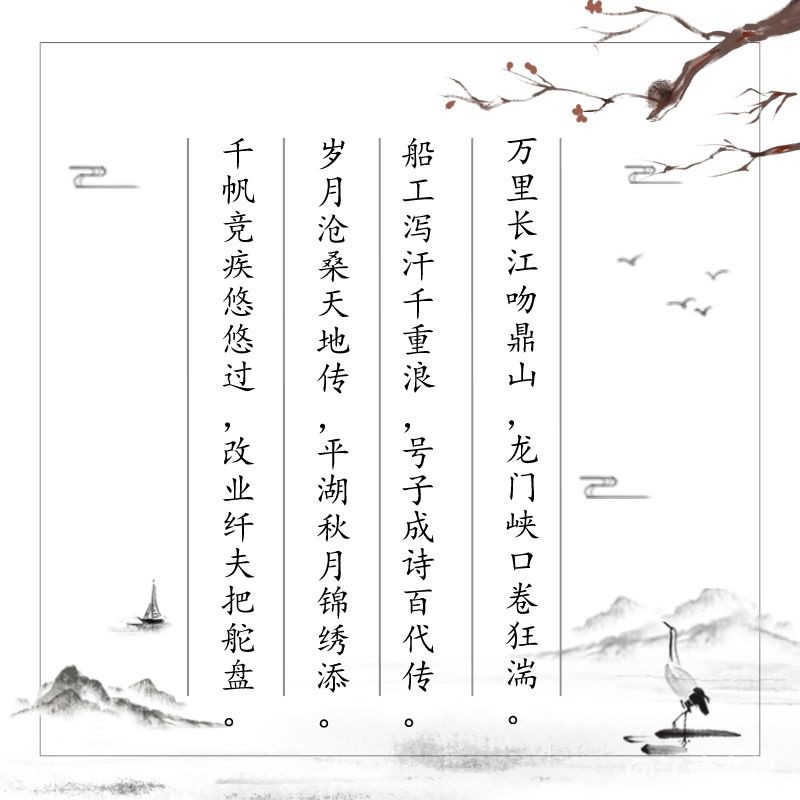 万里长江吻鼎山，龙门峡口卷狂湍。
船工泻汗千重浪，号子成诗百代传。
岁月沧桑天地传，平湖秋月锦绣添。
千帆竞疾悠悠过，改业纤夫把舵盘。